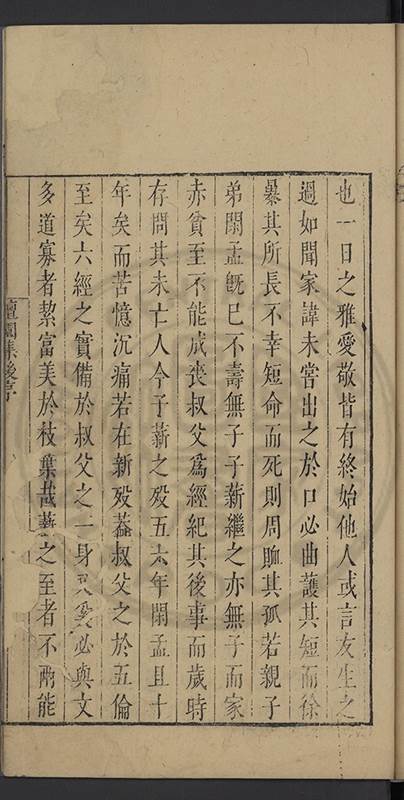 也一日之雅愛敬皆有終始他人或言友生之
過如聞家諱未嘗出之於口必曲護其短而徐
暴其所長不幸短命而死則周卹其孤若親子
弟閑孟旣已不壽無子子薪繼之亦無子而家
赤貧至不能成喪叔父爲經紀其後事而歲時
存問其未亡人今子薪之歿五六年閑孟且十
年矣而苦憶沉痛若在新歿葢叔父之於五倫
至矣六經之實備於叔父之一身又奚必與文
多道寡者絜富美於枝葉哉藝之至者不兩能
檀園集後序